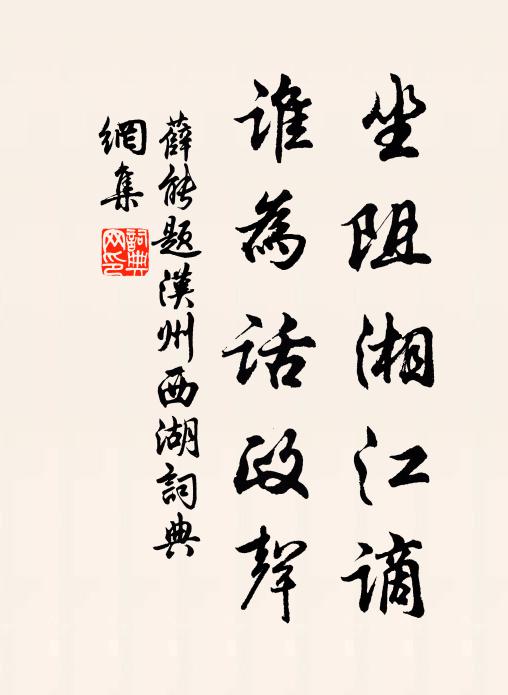 坐阻湘江謫
誰為話政聲
薛能題漢州西湖詞典
網集
詞典
网印